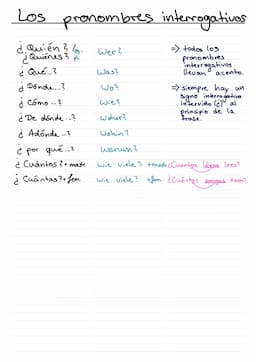 Los pronombres interrogativos
¿Quién? sg. Wer?
¿Quiénes? pl.
¿Qué..? Was?
¿Dónde..? Wo?
¿Cómo ..? Wie?
¿De dónde ..? Woher?
¿Adónde..? Wohin?
¿por qué..? Warum?
¿Cuántos? + mask. wie viele? + mask. ¿Cuántos libros lees?
¿Cuántas? + fem. wie viele? + fem. ¿Cuántas
⇒ todos los
pronombres
interrogativos
llevan acento.
⇒ siempre hay un
signo interrogativo
(¿) al
principio de la
frase.